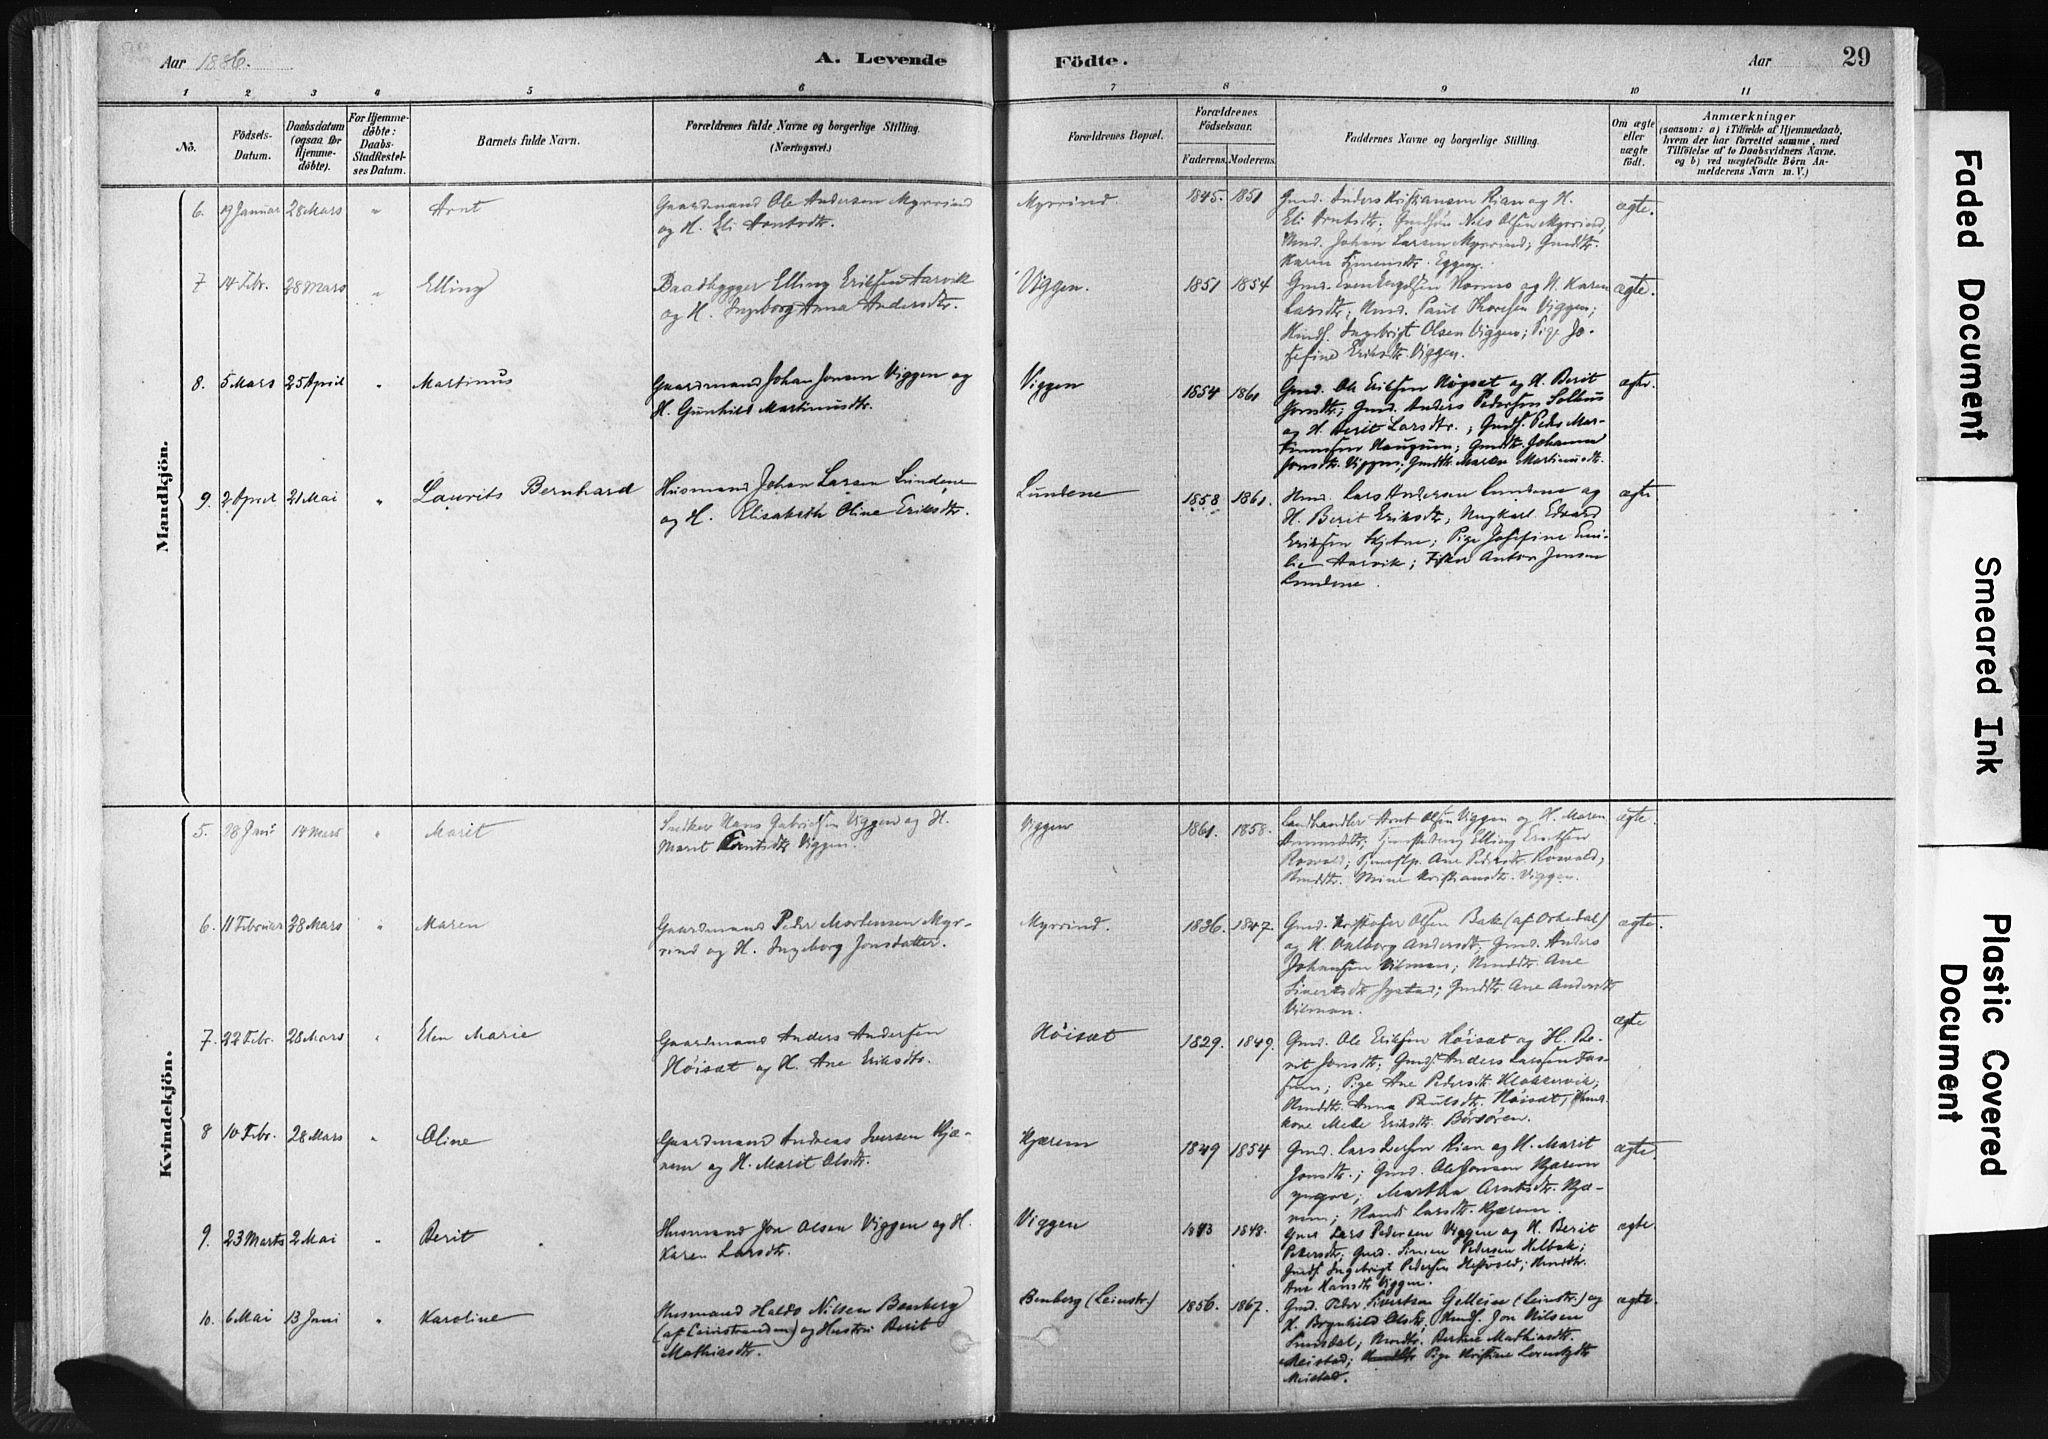 Aar 1886.
A. Levende
Födte.
Aar
29
1 2 3 4 5 6 7 8 9 10 11
No.
Födsels-
Datum.
Daabsdatum
(ogsaa for
Hjemme-
döbte).
For Hjemme-
döbte:
Daabs-
Stadfæstel-
ses Datum.
Barnets fulde Navn.
Forældrenes fulde Navne og borgerlige Stilling.
(Næringsvei.)
Forældrenes Bopæl.
Forældrenes
Födselsaar.
Faderens.
Moderens.
Faddernes Navne og borgerlige Stilling.
Om ægte
eller
uægte
födt.
Anmærkninger
(saasom: a) i Tilfælde af Hjemmedaab,
hvem der har forrettet samme, med
Tilföielse af to Daabsvidners Navne,
og b) ved uægtefödte Börn An-
melderens Navn m. V.)
Mandkjön.
6. Januar 28 Mars " Arnt
Gaardmand Ole Andersen Myrvind
og H. Eli Arntsdtr.
Myrvind 1845. 1851
Gmd. Anders Kristiansen Rian og H.
Eli Arntsdtr. Gmdsön Nils Olsen Myrvind,
Hmd. Johan Larsen Myrvind; Gmddtr.
Karen Simensdtr. Eggen.
ægte.
7 14 Febr. 28 Mars " Elling
Baadbygger Elling Eriksen Aarvik
og H. Ingeborg Anna Andersdtr.
Viggen. 1851 1854
Gmd. Even Hormo og H. Karen
Larsdtr; Hmd. Paul Thoresen Viggen;
Hmdf. Ingebrigt Olsen Viggen; Pige Jo-
sefine Eriksdtr. Viggen.
ægte.
8. 5 Mars 25 April " Martinus
Gaardmand Johan Jonsen Viggen og
H. Gunhild Martinusdtr.
Viggen 1854 1861
Gmd. Ole Eriksen Högsæt og H. Berit
Jonsdtr; Gmd. Anders Pedersen Solhus
og H. Berit Larsdtr.; Gmdf. Peder Mar-
; Gmddtr. Johanna
Jonsdtr. Viggen; Gmddtr. Maren Martinusdtr.
ægte.
9. 2 April 21 Mai " Laurits Bernhard
Husmand Johan Larsen Lundene
og H. Elisabeth Oline Eriksdtr.
Lundene 1858 1861.
Hmd. Lars Andersen Lundene og
H. Berit Eriksdtr, Ungkarl Edvard
Eriksen ; Pige Josefine Emi-
lie Aarvik; Fisker Anton Jensen
Lundene.
ægte
Kvindekjön.
5. 28 Jani 14 Mars " Marit
Snedker Hans Gabrielsen Viggen og H.
Marit Arntsdtr. Viggen.
Viggen 1861. 1858.
Landhandler Arnt Olsen Viggen og H. Maren
Amundsdtr; Elling Erntsen
Rosvold; Ane Pedersdtr. Rosvold;
Hmddtr. Mine Kristiansdtr. Viggen.
ægte.
6. 11 Februar 28 Mars " Maren
Gaardmand Peder Mortensen Myr-
vind og H. Ingeborg Jonsdatter.
Myrvind. 1836. 1847.
Gmd. Kristofer Olsen Bak (af Orkedal)
og H. Valborg Andersdtr; Gmd. Anders
Johansen Vilman; Hmddtr. Ane
Sivertsdtr ; Gmddtr. Ane Andersdtr
Vilman.
ægte.
7. 22 Febr. 28 Mars " Elen Marie
Gaardmand Anders Andersen
Höisæt og H. Ane Eriksdtr.
Höisæt 1829. 1849.
Gmd. Ole Eriksen Höisæt og H. Be-
rit Jonsdtr; Gmdf. Anders Larsen
; Pige Ane Pedersdtr. ;
Hmddtr. Anna Paulsdtr. Höisæt,
kone Mette Eriksdtr. Börsören.
ægte
8 10 Febr. 28 Mars " Oline
Gaardmand Andreas Iversen Kjæ-
rem og H. Marit Olsdtr.
Kjærem 1849 1854
Gmd. Lars Rian og H. Marit
Jonsdtr.; Gmd. Ole Jonsen Kjærem
yngre; Martha Arntsdtr. Kjæ-
rem; Larsdtr. Kjærem.
ægte.
9. 23 Marts 2 Mai " Berit
Husmand Jon Olsen Viggen og H.
Karen Larsdtr.
Viggen 1843 1848.
Gmd Lars Pedersen Viggen og H. Berit
Petersdtr; Gmd. Simen Pedersen Helbak;
Gmdf. Ingebrigt Pedersen ; Hmddtr.
Ane Hansdtr. Viggen.
ægte.
10. 6 Mai 13 Juni " Karoline
Husmand Haldo Nilsen Benberg
(af Leinstranden) og Hustru Berit
Mathiasdtr.
Benberg (Leinstr.) 1856. 1867.
Gmd. Peder Sivertsen (Leinstr.) og
H. Brynhild Olsdtr; Hmdf. Jon Nilsen
; Hmddtr. Berthe Mathiasdtr.
Meistad; Pige Kristine
Meistad.
ægte.
Faded Document
Smeared Ink
Plastic Covered
Document